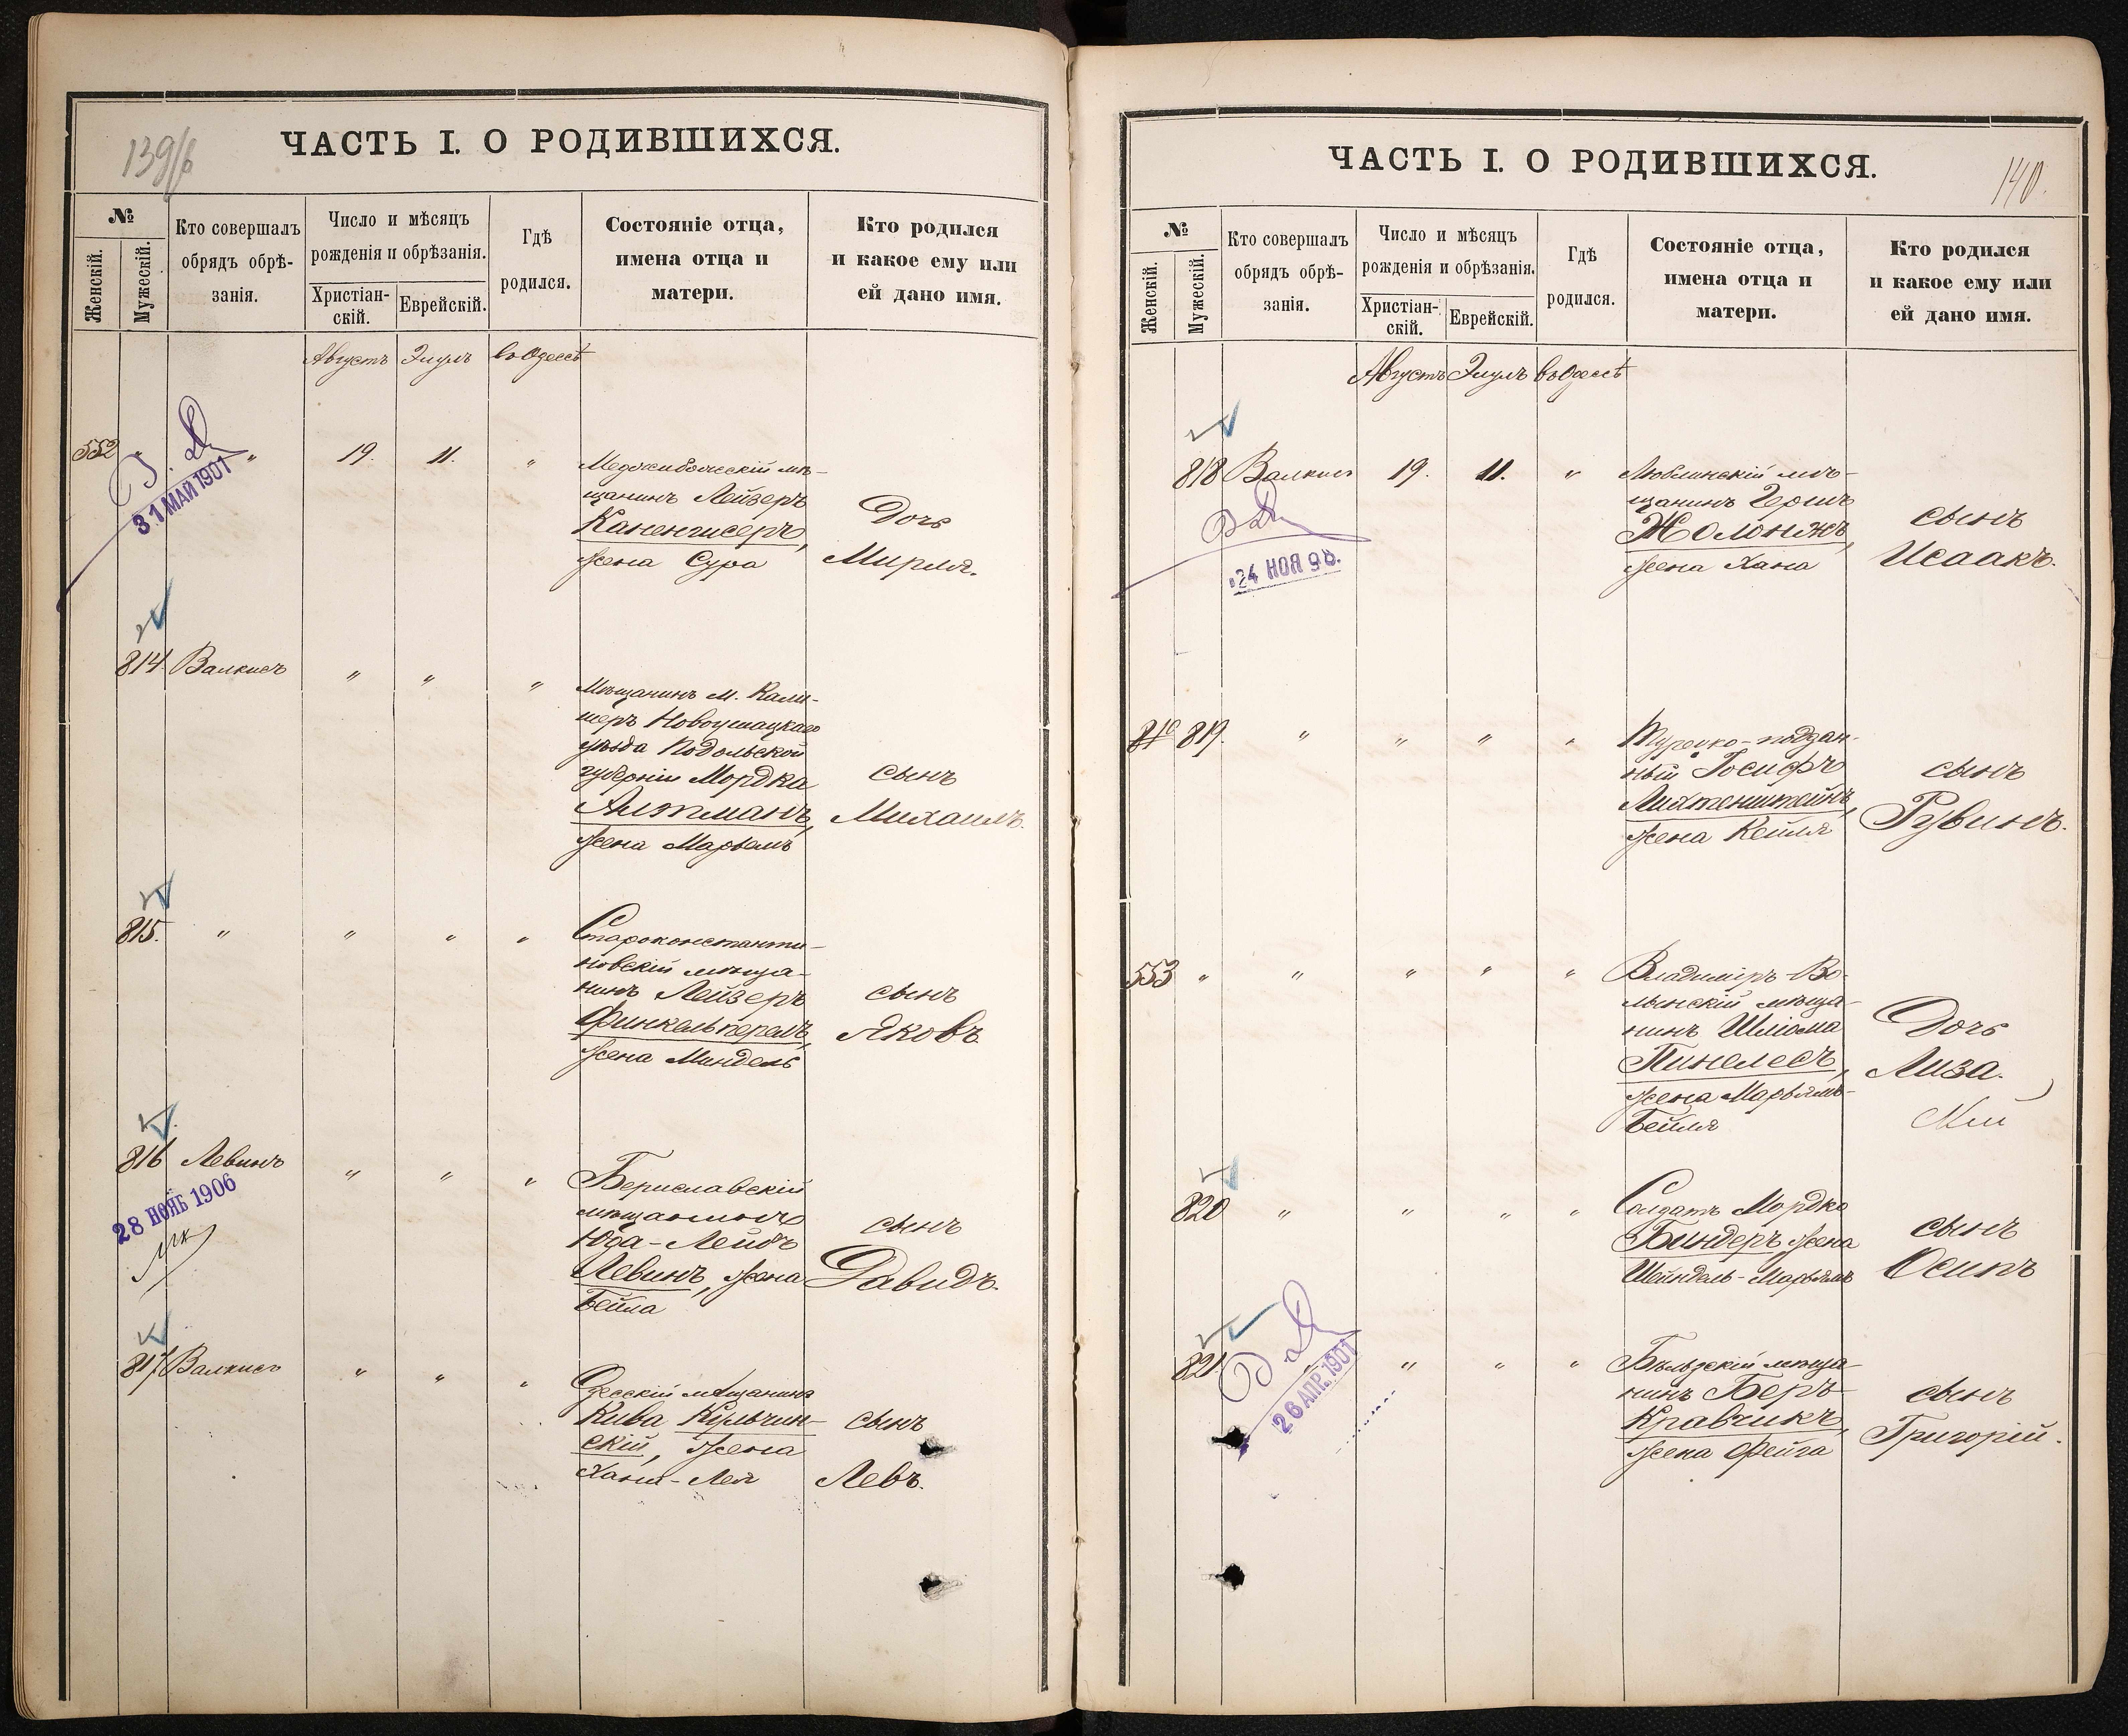 139/б
ЧАСТЬ I. О РОДИВШИХСЯ.
№
Женскій.
Мужескій.
Кто совершалъ
обрядъ обрѣ-
занія.
Число и мѣсяцъ
рожденія и обрѣзанія.
Христіан-
скій.
Еврейскій.
Гдѣ
родился.
Состояніе отца,
имена отца и
матери.
Кто родился
и какое ему или
ей дано имя.
Августъ Элулъ въ Одессѣ
552 " " 19. 11. "
31 МАЙ 1901
Меджибожскій мѣ-
щанинъ Лейзеръ
Каненгисеръ,
жена Сура
Дочь
Мирля.
814 Валкисъ " " "
Мѣщанинъ м. Кали-
шеръ Новоушицкаго
уѣзда Подольской
губерніи Мордка
Альтманъ,
жена Марьямъ
сынъ
Михаилъ.
815. " " " "
Староконстанти-
новскій мѣща-
нинъ Лейзеръ
Финкельперель,
жена Миндель
сынъ
Яковъ
816 Левинъ " " "
28 НОЯБ 1906
Бериславскій
мѣщанинъ
Юда-Лейбъ
Левинъ, жена
Бейла
сынъ
Давидъ.
817 Валкисъ " " "
Одесскій мѣщанинъ
Кива Кульчин-
скій, жена
Хана-Лея
сынъ
Левъ.
ЧАСТЬ I. О РОДИВШИХСЯ.
140.
№
Женскій.
Мужескій.
Кто совершалъ
обрядъ обрѣ-
занія.
Число и мѣсяцъ
рожденія и обрѣзанія.
Христіан-
скій.
Еврейскій.
Гдѣ
родился.
Состояніе отца,
имена отца и
матери.
Кто родился
и какое ему или
ей дано имя.
Августъ Элулъ въ Одессѣ
818 Валкисъ 19. 11. "
24 НОЯ 98.
Люблинскій мѣ-
щанинъ Гершъ
Жолонжъ,
жена Хана
сынъ
Исаакъ.
819. " " " "
Турецко-поддан-
ный Іосифъ
Лихтенштейнъ,
жена Кейля
сынъ
Рувинъ.
553 " " " " "
Владиміръ-Во-
лынскій мѣща-
нинъ Шліома
Пинелесъ,
жена Марьямъ-
Бейля
Дочь
Лиза.
820 " " " "
Солдатъ Мордко
Биндеръ жена
Шейндель-Марьямъ
сынъ
Осипъ
821 " " " "
26 АПР. 1901
Бѣльзскій мѣща-
нинъ Беръ
Кравчикъ,
жена Фейга
сынъ
Григорій.